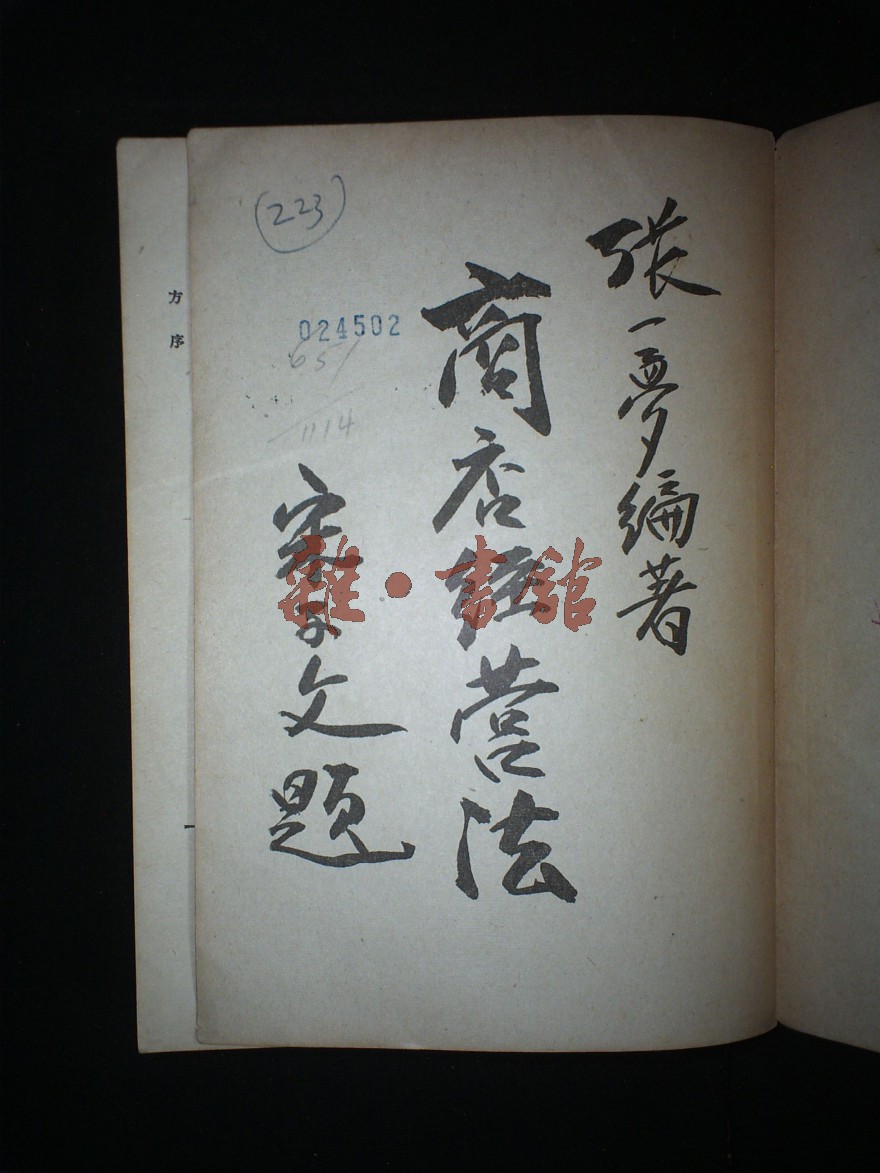 張一夢編著
商店經營法
文題
(223)
024502
651
1114
方序
雜·書館